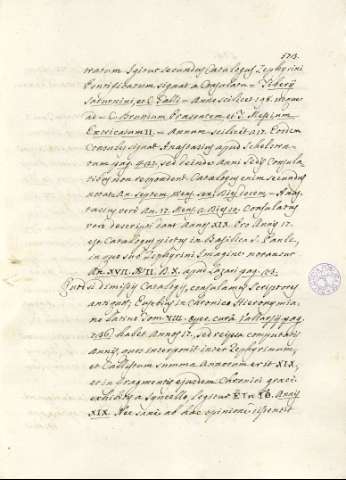 523.
ratum. Igitur secundus Catalogus Zephyrini
Pontificatum signat a Consulatu
Saturnini, et C. Galli - Anno scilicet 198. usque
ad - C. Bruttium Praesentem et T. Messium
Extricatum II. - Annum scilicet 217. Eosdem
Consules signat Anastasius apud Schelstra-
tum pag. sed deinde Anni Sedis Consula-
tibus non respondent. Catalogus enim secundus
notat An. septem, Mens. sex, Dies decem - Anas-
tasius vero An. 17. Mens. 2. Dies 10. Consulatus
vero descripti dant Annos XIX. Pro Annis 17.
est Catalogus pictus in Basilica S. Pauli,
in quo sub Zephyrini Imagine notantur
An. XVII. M. II. D. X. apud
Quod si dimissis Catalogis, consulamus Scriptores
antiquos; Eusebius in Chronico Hieronymia-
no Latine Tom. VIII. oper. cura Vallarsij pag.
habet Annos 17. sed reipsa computatis
Annis, quos interponit inter Zephyrinum,
et Callistum summa Annorum erit XIX,
et in Fragmentis ejusdem Chronici graeci
exhibitis a Syncello, legitur Annis
XIX. Nec sane ab hac opinione